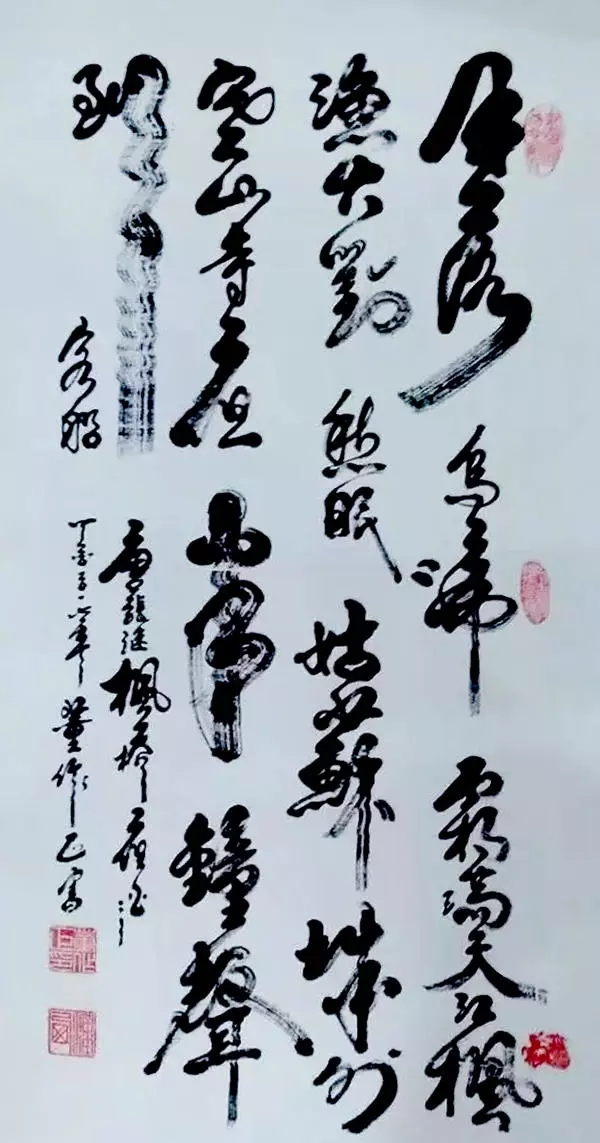 月落烏啼霜滿天江楓
漁火對愁眠姑蘇城外
寒山寺夜半鐘聲
到客船
唐張継楓橋夜泊
年董作